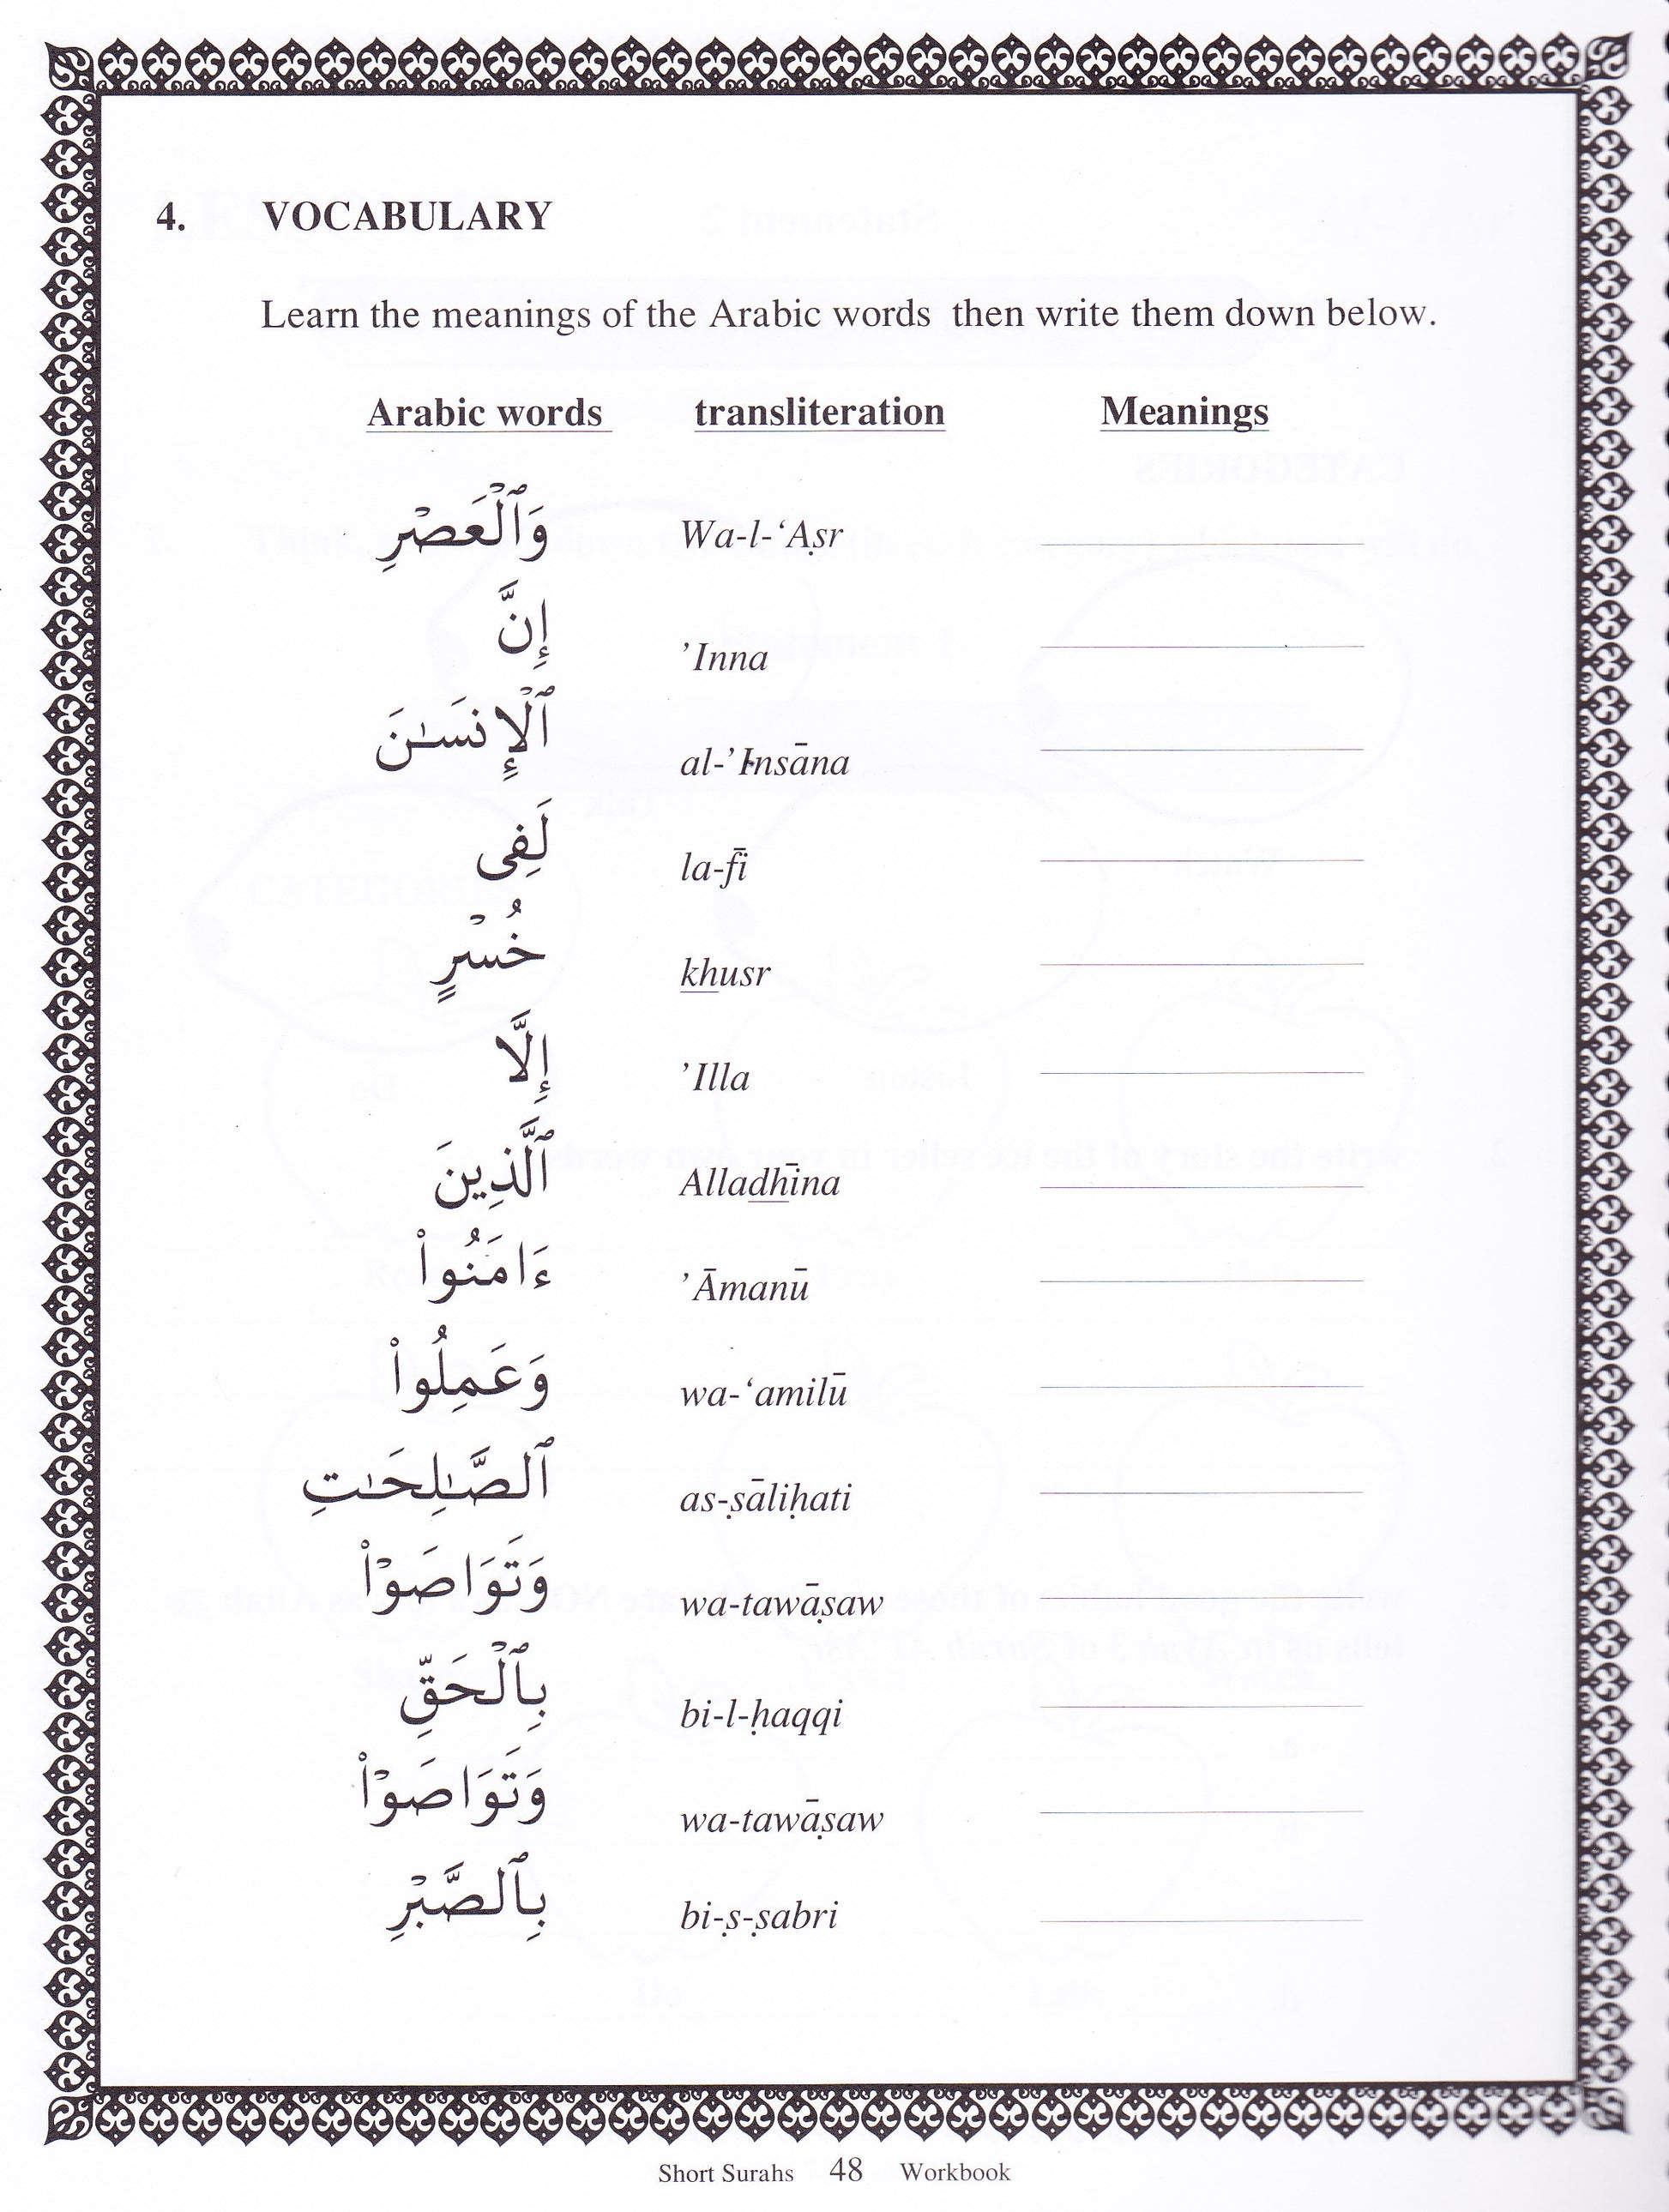 4. VOCABULARY
Learn the meanings of the Arabic words then write them down below.
Arabic words transliteration Meanings
وَٱلْعَصْرِ Wa-l-‘Aṣr
إِنَّ ’Inna
ٱلْإِنسَـٰنَ al-’Insāna
لَفِى la-fī
خُسْرٍ khusr
إِلَّا ’Illa
ٱلَّذِينَ Alladhīna
ءَامَنُوا۟ ’Āmanū
وَعَمِلُوا۟ wa-‘amilū
ٱلصَّـٰلِحَـٰتِ as-ṣāliḥati
وَتَوَاصَوْا۟ wa-tawāṣaw
بِٱلْحَقِّ bi-l-ḥaqqi
وَتَوَاصَوْا۟ wa-tawāṣaw
بِٱلصَّبْرِ bi-ṣ-ṣabri
Short Surahs 48 Workbook